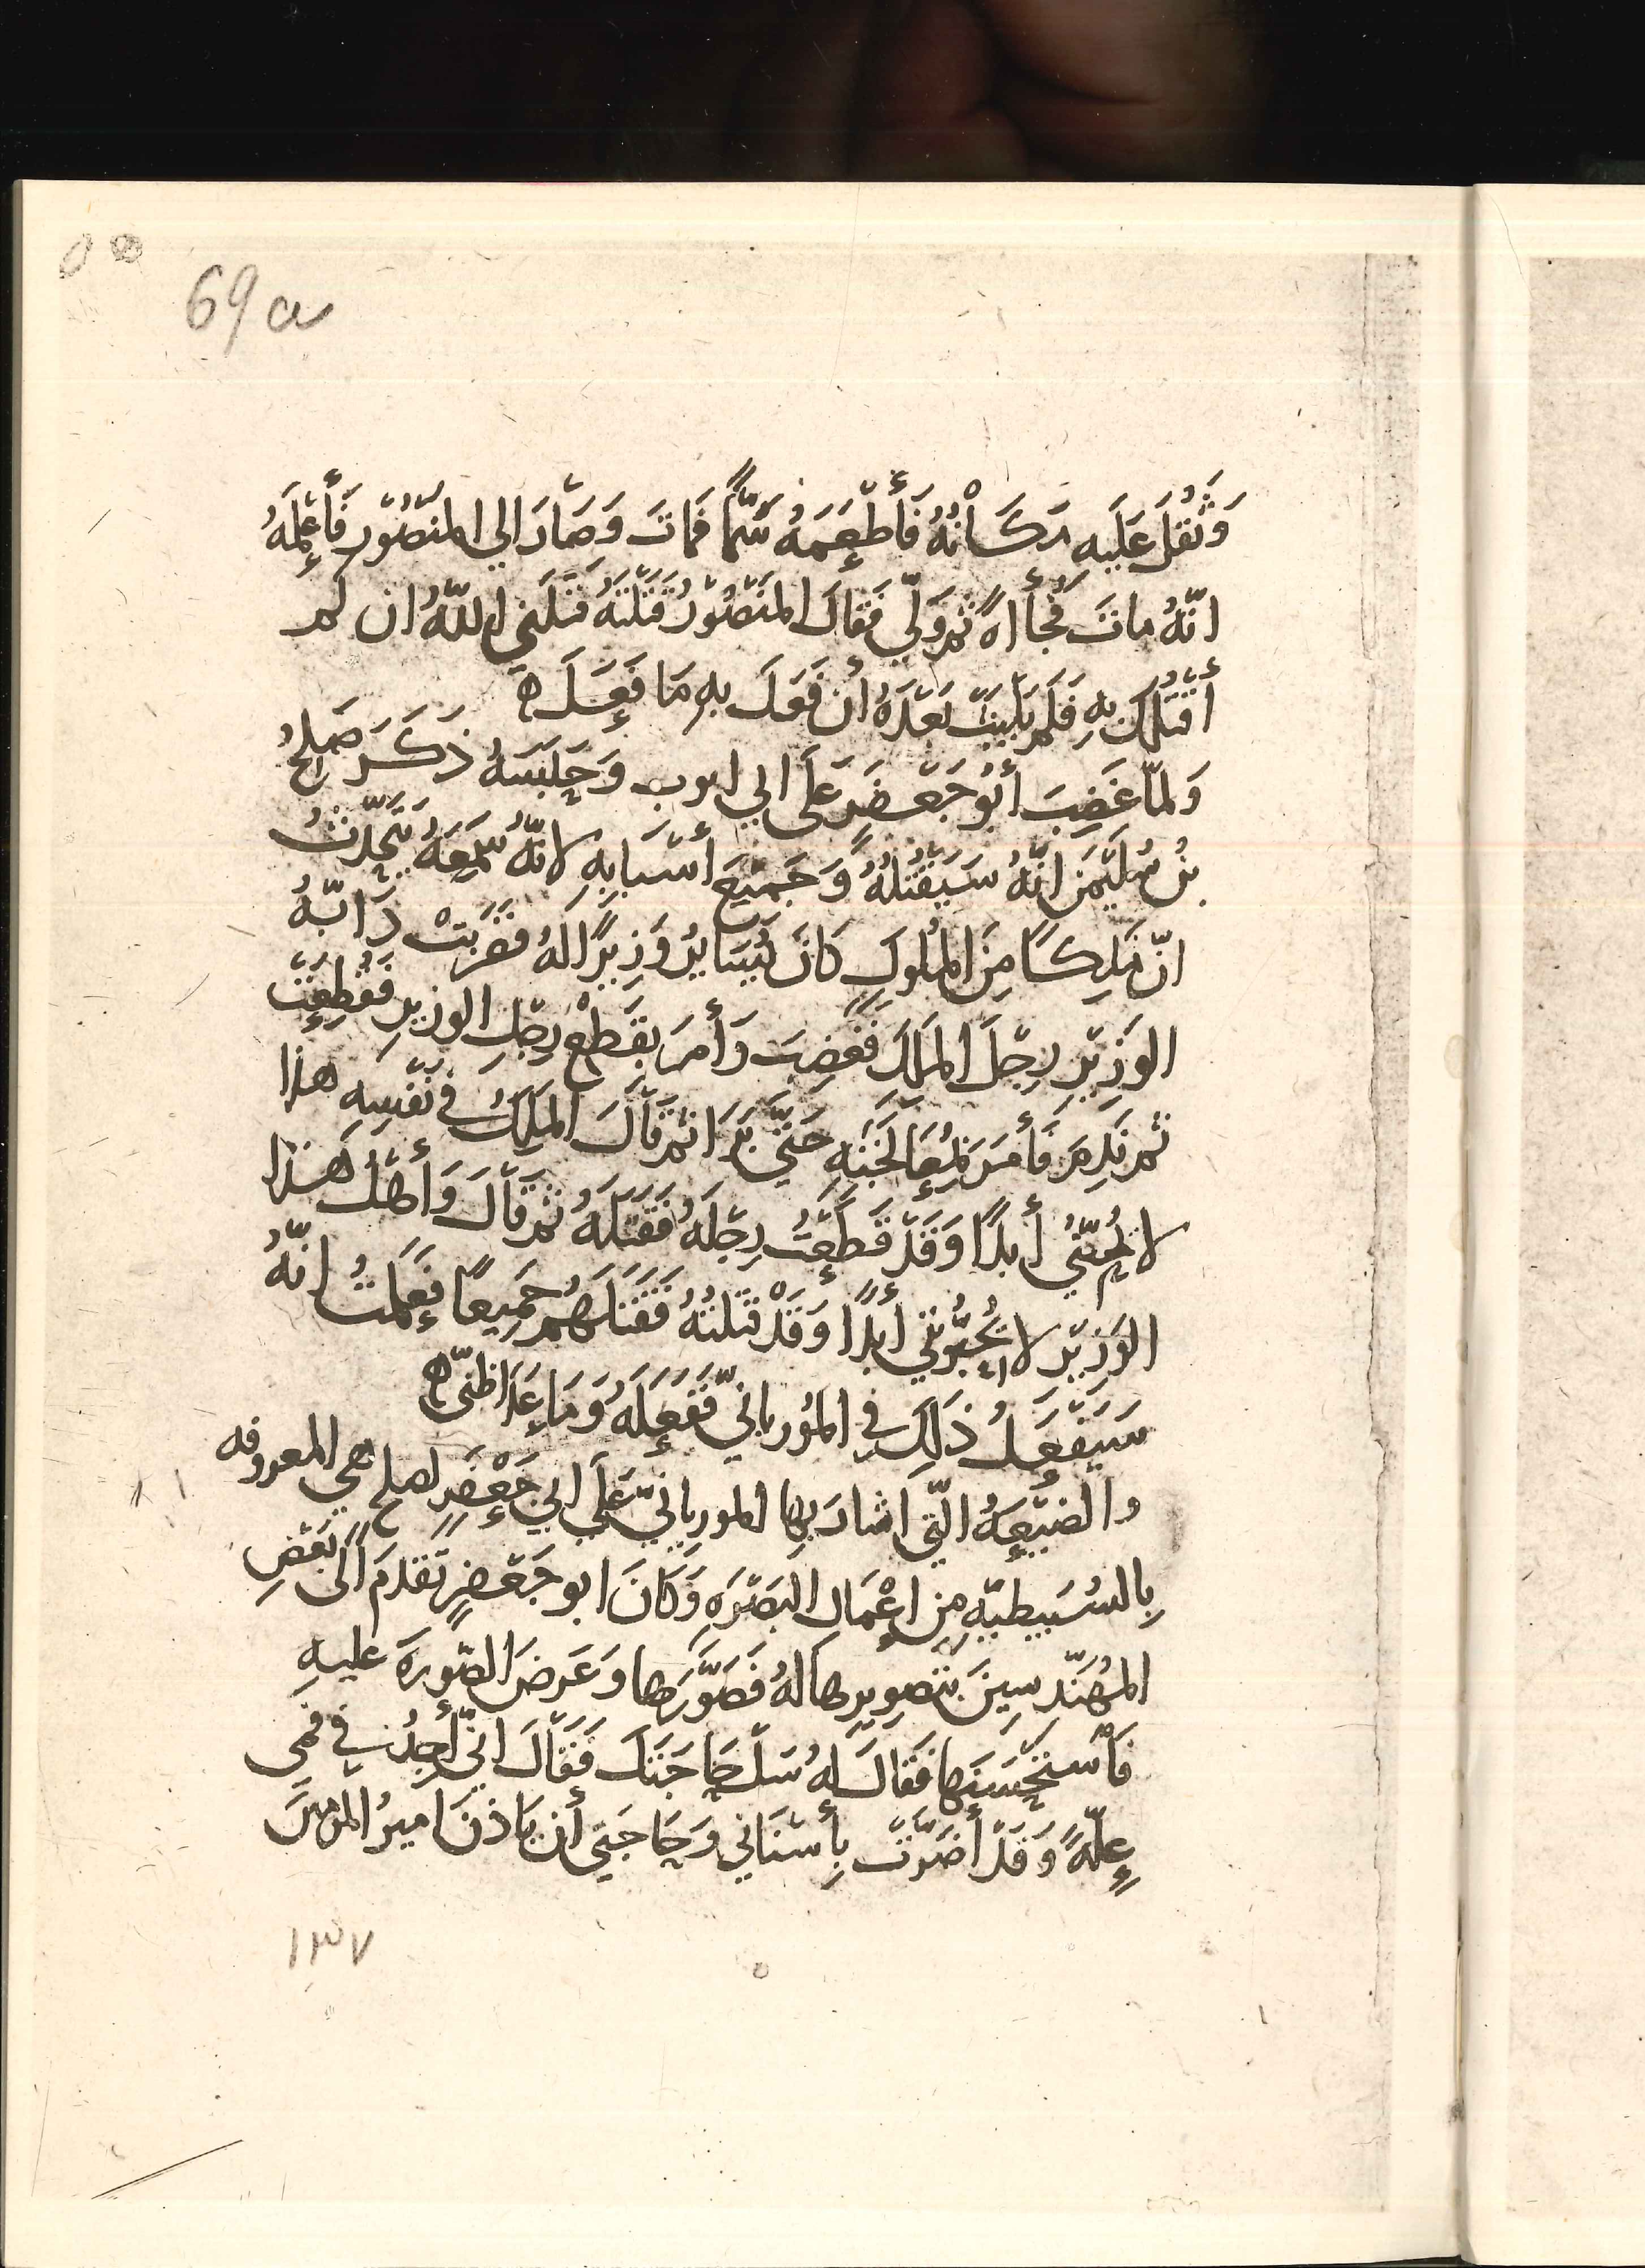 69a
وَثَقُلَ عَلَيهِ مَكَانُهُ فَأَطْعَمَهُ سَمًّا فَمَاتَ وَصَارَ الي المنصُورِ فَأَعْلَمَهُ
انّهُ ماتَ فُجأاةً ثم وَلّي فَقالَ المنصُورُ قَتَلتَهُ قَتَلَني اللّهُ ان لم
أقتُلك بِهِ فلَم يَلبَث بَعْدَهُ أن فَعَلَ بِهِ مَا فَعَلَ ه
وَلمّا غَضِبَ أبُو جَعْفَرٍ عَلَى ابي ايوب وَحَبَسَهُ ذَكَرَ صَلِحُ
بنُ سُلَيْمَنَ انّهُ سَيَقْتُلُهُ وَجَميعَ أسْبَابِهِ لانّهُ سَمِعَهُ يَتَحَدّثُ
انّ مَلِكًا مِنَ المُلُوكِ كَانَ يُسَايرُ وَزِيرًا لهُ فضَرَبَتْ دَابّةُ
الوَزِيْرِ رِجْلَ المَلِكِ فَغَضِبَ وَأَمَرَ بقَطْعِ رِجْلِ الوزيرِ فَقُطِعَتْ
ثم نَدِمَ فَأَمَرَ بمُعَالَجَتِهِ حَتَّى بَرَا ثم قَالَ المَلِكُ في نَفْسِهِ هذا
لا يُحِبّنُي أبدًا وَقَدْ قَطَعْتُ رِجْلَهُ فَقَتَلَهُ ثم قَالَ وَأهْلُ هَذا
الوَزيْرِ لا يُحِبُّونني أبدًا وَقَدْ قَتَلْتُهُ فَقَتَلَهُم جَمِيعًا فَعَلِمْتُ انّهُ
سَيَفْعَلُ ذَلِكَ في المُورياني فَفَعَلَهُ وَمَا عَدَا ظَنّي ه
والضيْعَهُ التي اشارَ بِها المورياني عَلَى ابي جَعْفَرٍ لصلح هي المعروفه
بِالسُبَيطيّهِ مِن اعْمَالِ البَصْرَهِ وَكَانَ ابو جَعْفَرٍ تَقَدمَ الَى بَعْضِ
المُهَنْدِسِينَ بتَصويرِها لهُ فَصَوَّرَها وَعَرضَ الصُورَةَ عليهِ
فَاسْتَحْسَنَها فَقَالَ لهُ سَلْ حَاجَتَكَ فَقَالَ انّي أجدُ في فمي
عِلّةً وَقَدْ أضَرّتْ بِأسْنَاني وَحَاجَتي أن يَاذنَ اميرُ المومنين
١٣٧